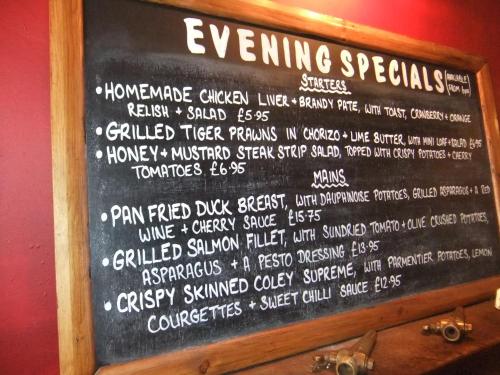 EVENING SPECIALS AVAILABLE FROM 6pm
STARTERS
• HOMEMADE CHICKEN LIVER + BRANDY PATE, WITH TOAST, CRANBERRY + ORANGE
RELISH + SALAD £5.95
• GRILLED TIGER PRAWNS IN CHORIZO + LIME BUTTER, WITH MINI LOAF + SALAD £6.95
• HONEY + MUSTARD STEAK STRIP SALAD, TOPPED WITH CRISPY POTATOES + CHERRY
TOMATOES £6.95
MAINS
• PAN FRIED DUCK BREAST, WITH DAUPHINOISE POTATOES, GRILLED ASPARAGUS + A RED
WINE + CHERRY SAUCE £15.75
• GRILLED SALMON FILLET, WITH SUNDRIED TOMATO + OLIVE CRUSHED POTATOES,
ASPARAGUS + A PESTO DRESSING £13.95
• CRISPY SKINNED COLEY SUPREME, WITH PARMENTIER POTATOES, LEMON
COURGETTES + SWEET CHILLI SAUCE £12.95